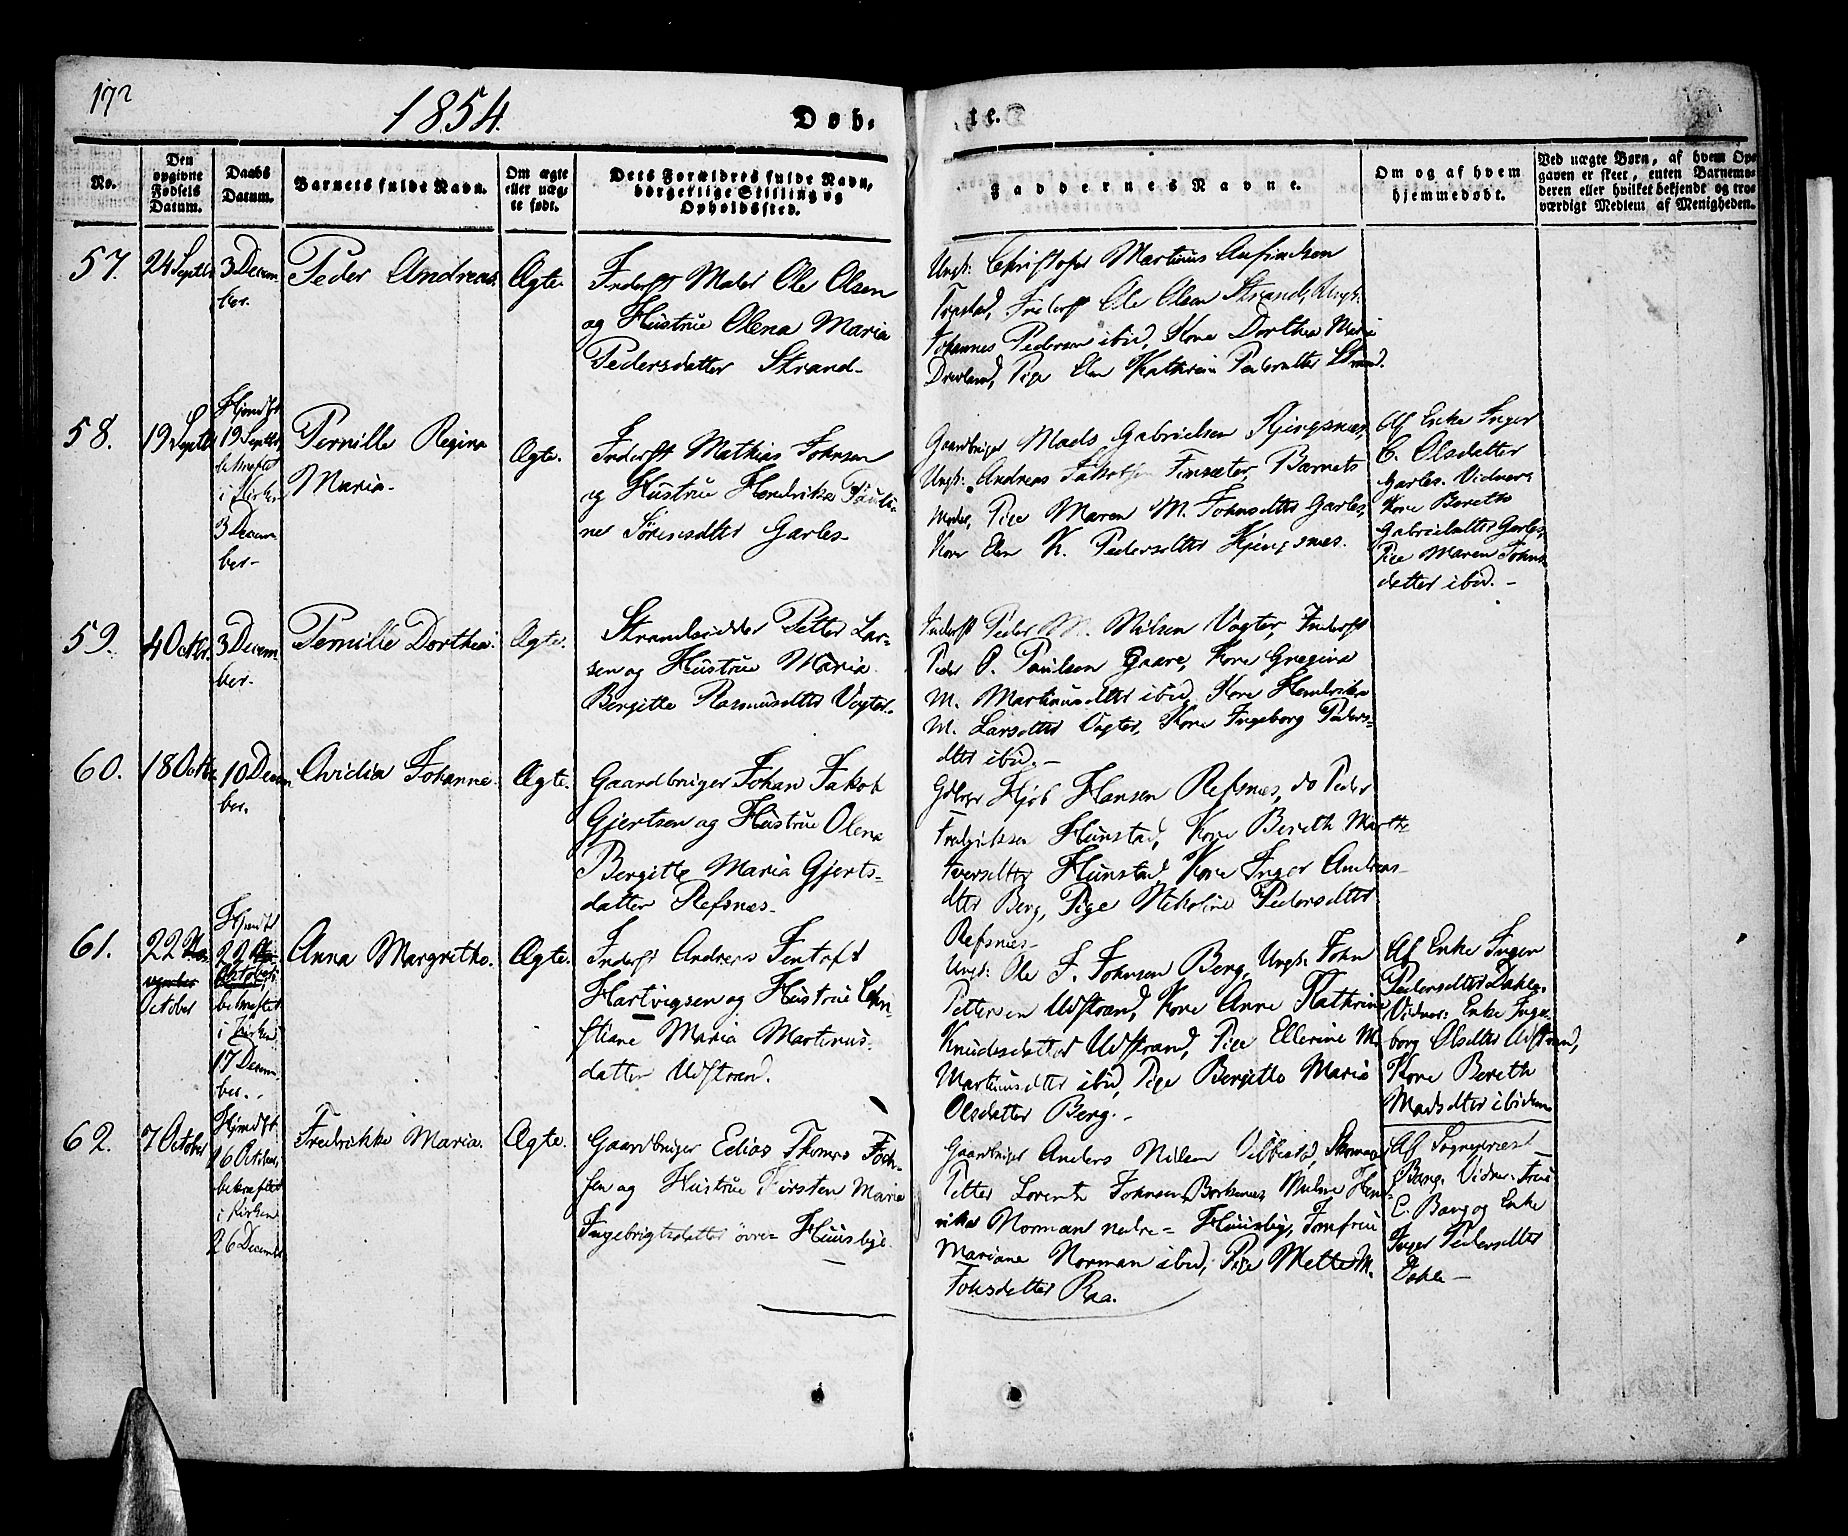 172
1854.
Døb-
te.
No.
Den
opgivne
Fødsels
Datum.
Daabs
Datum.
Barnets fulde Navn.
Om ægte
eller uæg-
te født.
Dets Forældres fulde Navn,
borgerlige Stilling og
Opholdssted.
Faddernes Navne.
Om og af hvem
hjemmedøbt.
Ved uægte Børn, af hvem Op-
gaven er skeet, enten Barnemo-
deren eller hvilket bekjendt og tro-
værdigt Medlem af Menigheden.
57.
24 Septbr
3 Decem-
ber.
Peder Andreas.
Ægte.
Inderst Maler Ole Olsen
og Hustrue Olena Maria
Pedersdatter Strand.
Ungk: Christofer Martinus
Inderst Ole Olsen Strand, Ungk:
Johannes Pedersen ibid, Kone Dorthea Maria
Pige Elen Kathrin Pedersdtter Strand.
58.
19 Septbr
Hjemdøbt
19 Septbr,
bekræftet
i Kirken
3 Decem-
ber-
Pernille Regina
Maria.
Ægte.
Inderst Mathias Johnsen
og Hustrue Hendrikke Pauli-
ne Sørensdtter Garles.
Gaardbruger Mads Gabrielsen Kjingsnæs,
Ungk: Andreas Jakobsen Finsæter, Barnets
Moder, Pige Maren M. Johnsdtter Garles,
Kone Elen K. Pedersdtter Kjingsnæs.
Af Enke Inger
C. Olsdatter
Garles. Vidner:
Kone Berethe
Gabrielsdtter Garles,
Pige Maren Johns-
datter ibid. -
59.
4 Octbr.
3 Decem-
ber.
Pernille Dorthea.
Ægte.
Strandsidder Petter Lar-
sen og Hustrue Maria
Bergitte Rasmusdtter Vogter.
Inderst Peder M. Nilsen Vogter, Inderst
Peder O. Paulsen Gaare, Kone Gregine
M. Martinusdtter ibid, Kone Hendrikke
M. Larsdtter Vogter, Kone Ingeborg Peders-
dtter ibid. -
60.
18 Octbr.
10 Decem-
ber.
Ovidia Johanne.
Ægte.
Gaardbruger Johan Jakob
Gjertsen og Hustrue Olena
Bergitte Maria Gjerts-
datter Refsnes.
Gdbrgr Hansen Refsnæs, do Peder
Fredriksen Hunstad, Kone Bereth Marthe
Iversdtter Hunstad, Kone Inger Andreas-
dtter Berg, Pige Nikoline Pedersdtter
Refsnes-
61.
22 No-
vember
October
Hjemdøbt
22
Oktober,
bekræftet
i Kirken
17 Decem-
ber.
Anna Margrethe.
Ægte.
Inderst Andreas Tentoft
Hartvigsen og Hustrue Chri-
stiane Maria Martinus-
datter Udstrand.
Ungk: Ole J. Johnsen Berg, Ungk: John
Pettersen Udstrand, Kone Anne Kathrine
Knudsdatter Udstrand, Pige Ellerine M.
Martinusdtter ibid, Pige Bergitte Maria
Olsdatter Berg. -
Af Enke Inger
Pedersdtter Dahle.
Vidner: Enke Inge-
borg Olsdtter Udstrand,
Kone Bereth
Madsdtter ibidem
62.
7 October
Hjemdøbt.
16 October,
bekræftet
i Kirken
26 December
Fredrikke Maria.
Ægte.
Gaardbruger Edias Thomas Foch-
sen og Hustrue Kirsten Maria
Ingebrigtsdatter øvre Huusbye.
Gaardbruger Anders Nilsen
Petter Lorentz Johnsen Borkenes, Md Hen-
rikke Norman nedre - Huusby, Jomfrue
Mariane Norman ibid, Pige Mette M.
Johsdatter Raa.
Af Sognepræst
Bang. Vidner: Frue
E. Bang og Enke
Inger Pedersdtter
Dahle -